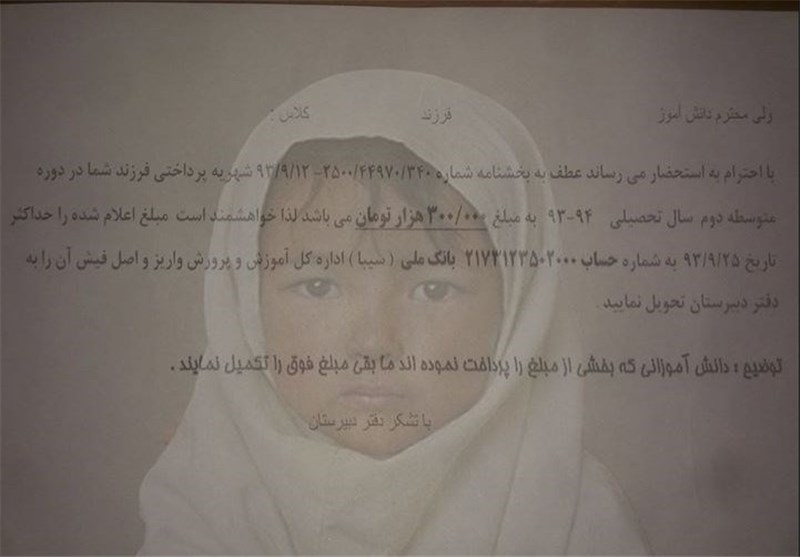 ولی محترم دانش آموز فرزند کلاس :
با احترام به استحضار می رساند عطف به بخشنامه شماره ۲۵۰۰/۴۴۹۷۰/۳۴۰- ۹۳/۹/۱۲ شهریه پرداختی فرزند شما در دوره
متوسطه دوم سال تحصیلی ۹۴-۹۳ به مبلغ ۳۰۰/۰۰۰ هزار تومان می باشد لذا خواهشمند است مبلغ اعلام شده را حداکثر
تاریخ ۹۳/۹/۲۵ به شماره حساب ۲۱۷۳۱۲۳۵۰۲۰۰۰ بانک ملی ( سیبا ) اداره کل آموزش و پرورش واریز و اصل فیش آن را به
دفتر دبیرستان تحویل نمایید .
توضیع : دانش آموزانی که بخشی از مبلغ را پرداخت نموده اند ما بقی مبلغ فوق را تکمیل نمایند .
با تشکر دفتر دبیرستان